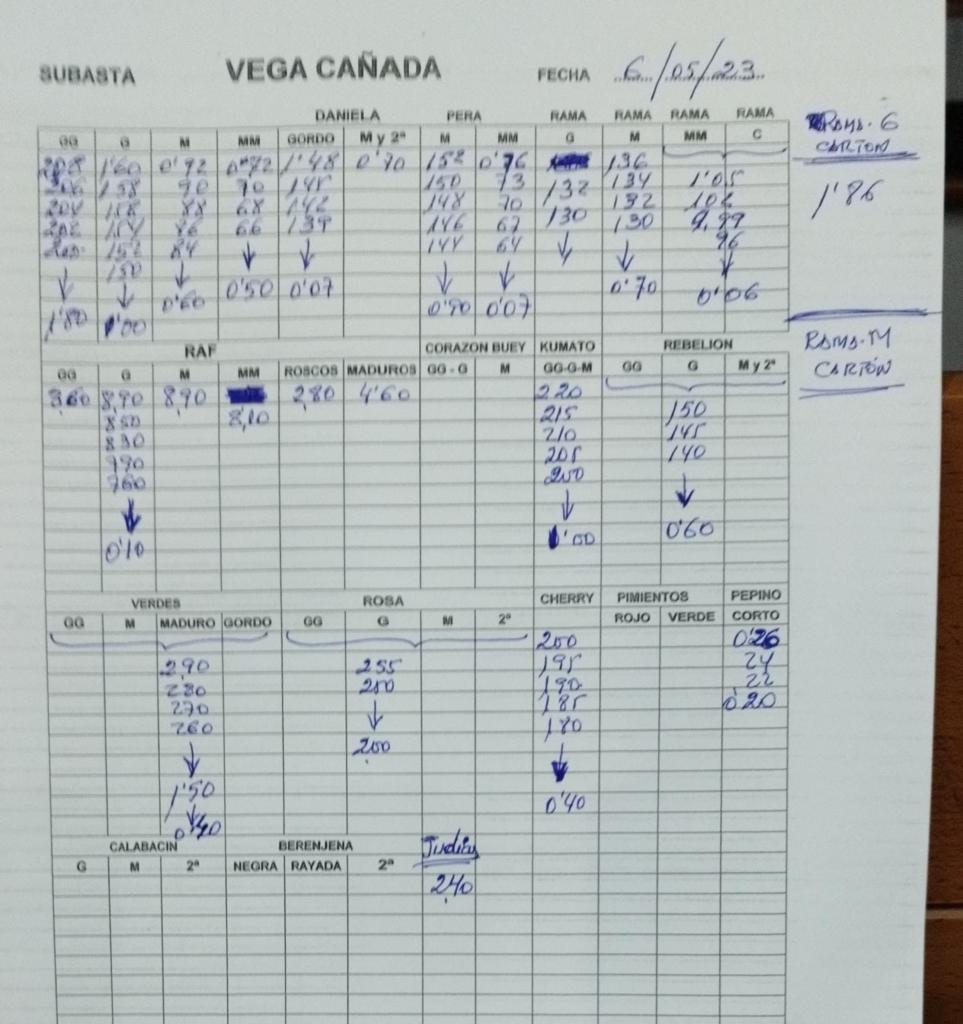 SUBASTA VEGA CAÑADA FECHA 6/05/23
DANIELA PERA RAMA RAMA RAMA RAMA
GG G M MM GORDO M y 2ª M MM G M MM C
RAMA-G
CARTON
208 1'60 0'92 0'72 1'48 0'70 152 0'76 136
206 158 90 70 145 150 73 132 134 1'05
204 88 68 142 148 70 130 132 102
202 154 86 66 139 146 67 130 0,99
200 152 84 144 64 96
150
1'86
0'60 0'50 0'07 0'90 0'07 0'70 0'06
1'80 1'00
RAF CORAZON BUEY KUMATO REBELION
RAMA-M
CARTÓN
GG G M MM ROSCOS MADUROS GG - G M GG-G-M GG G M y 2ª
8,90 8,90 2,80 4'60 220
850 8,10 215 150
830 210 145
790 205 140
760 200
0'10 1'00 0'60
VERDES ROSA CHERRY PIMIENTOS PEPINO
GG M MADURO GORDO GG G M 2ª ROJO VERDE CORTO
200 0'26
2,90 255 195 24
280 250 190 22
270 185 0'20
260 200 180
1'50 0'40
0'40
CALABACIN BERENJENA Judía
G M 2ª NEGRA RAYADA 2ª
2,40